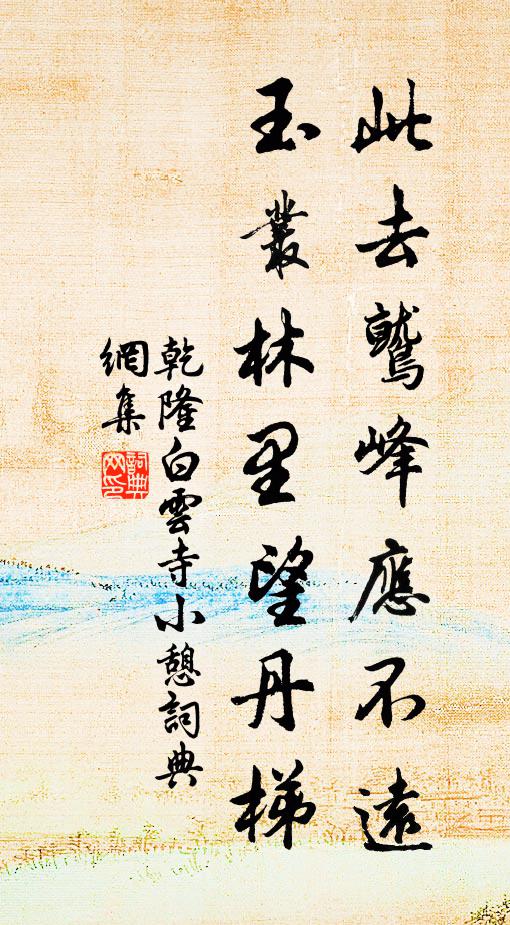 此去鷲峰應不遠
玉叢林里望丹梯
乾隆白雲寺小憩詞典
網集
詞典網印